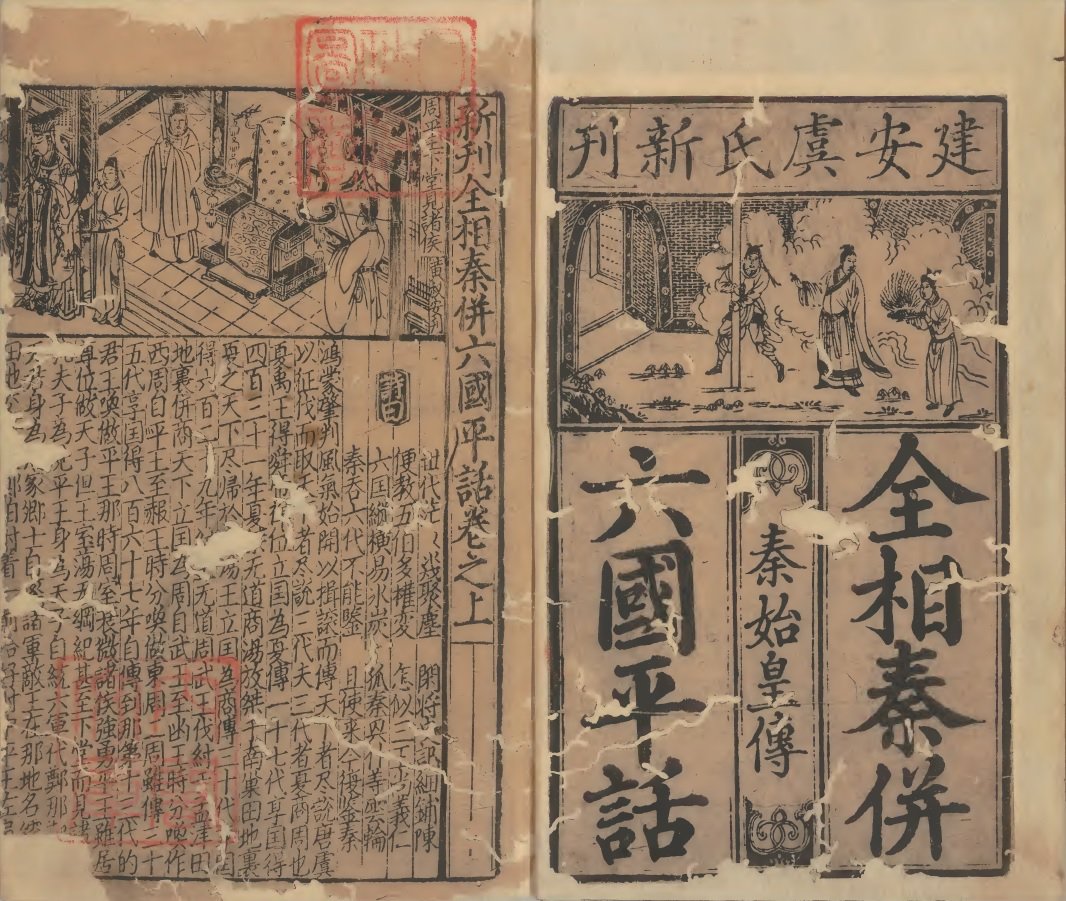 建安虞氏新刊
全相秦併
秦始皇傳
六國平話
新刊全相秦併六國平話卷之上
詩曰
代茫〻幾聚塵 閑將史記細鋪陳
便教五伯多權變 怎似三王尚義仁
六囯縱橫易冰炭 孤秦興仆等雲輪
秦吞六代不能鑒 且使來今復鑒秦
鴻蒙肇判風氣始開以揖遜而傳天下者尽說唐虞
以征伐而取天下者尽說三代夫三代者夏商周也
夏禹王得舜帝禪位立国為夏傳一十七代享国得
四百三十二年夏桀无道商湯放桀于南巢田地裏
夏之天下尽歸於湯湯王立国為商傳三十代享国
得六百二十九年紂王无道周武王伐紂于孟津田
地裏併商天下立囯為周自武王至幽王時分喚作
西周自平王至赧王時分喚做東周東周雖傳三十
五代享囯得八百六十七年自傳到那第十二代的
君王喚做平王那時周室衰微諸侯強勇平王雖居
尊位做天子但王室蕩无綱紀甚至下堂而見諸
夫子為見平王身為天子自統六軍代鄭那